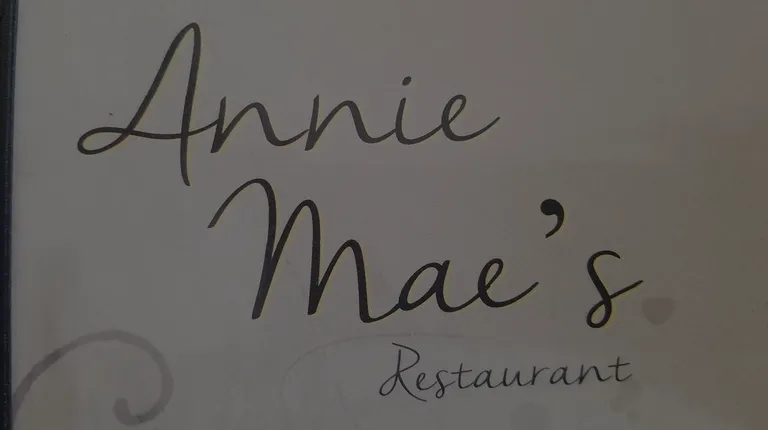 Annie
Mae's
Restaurant